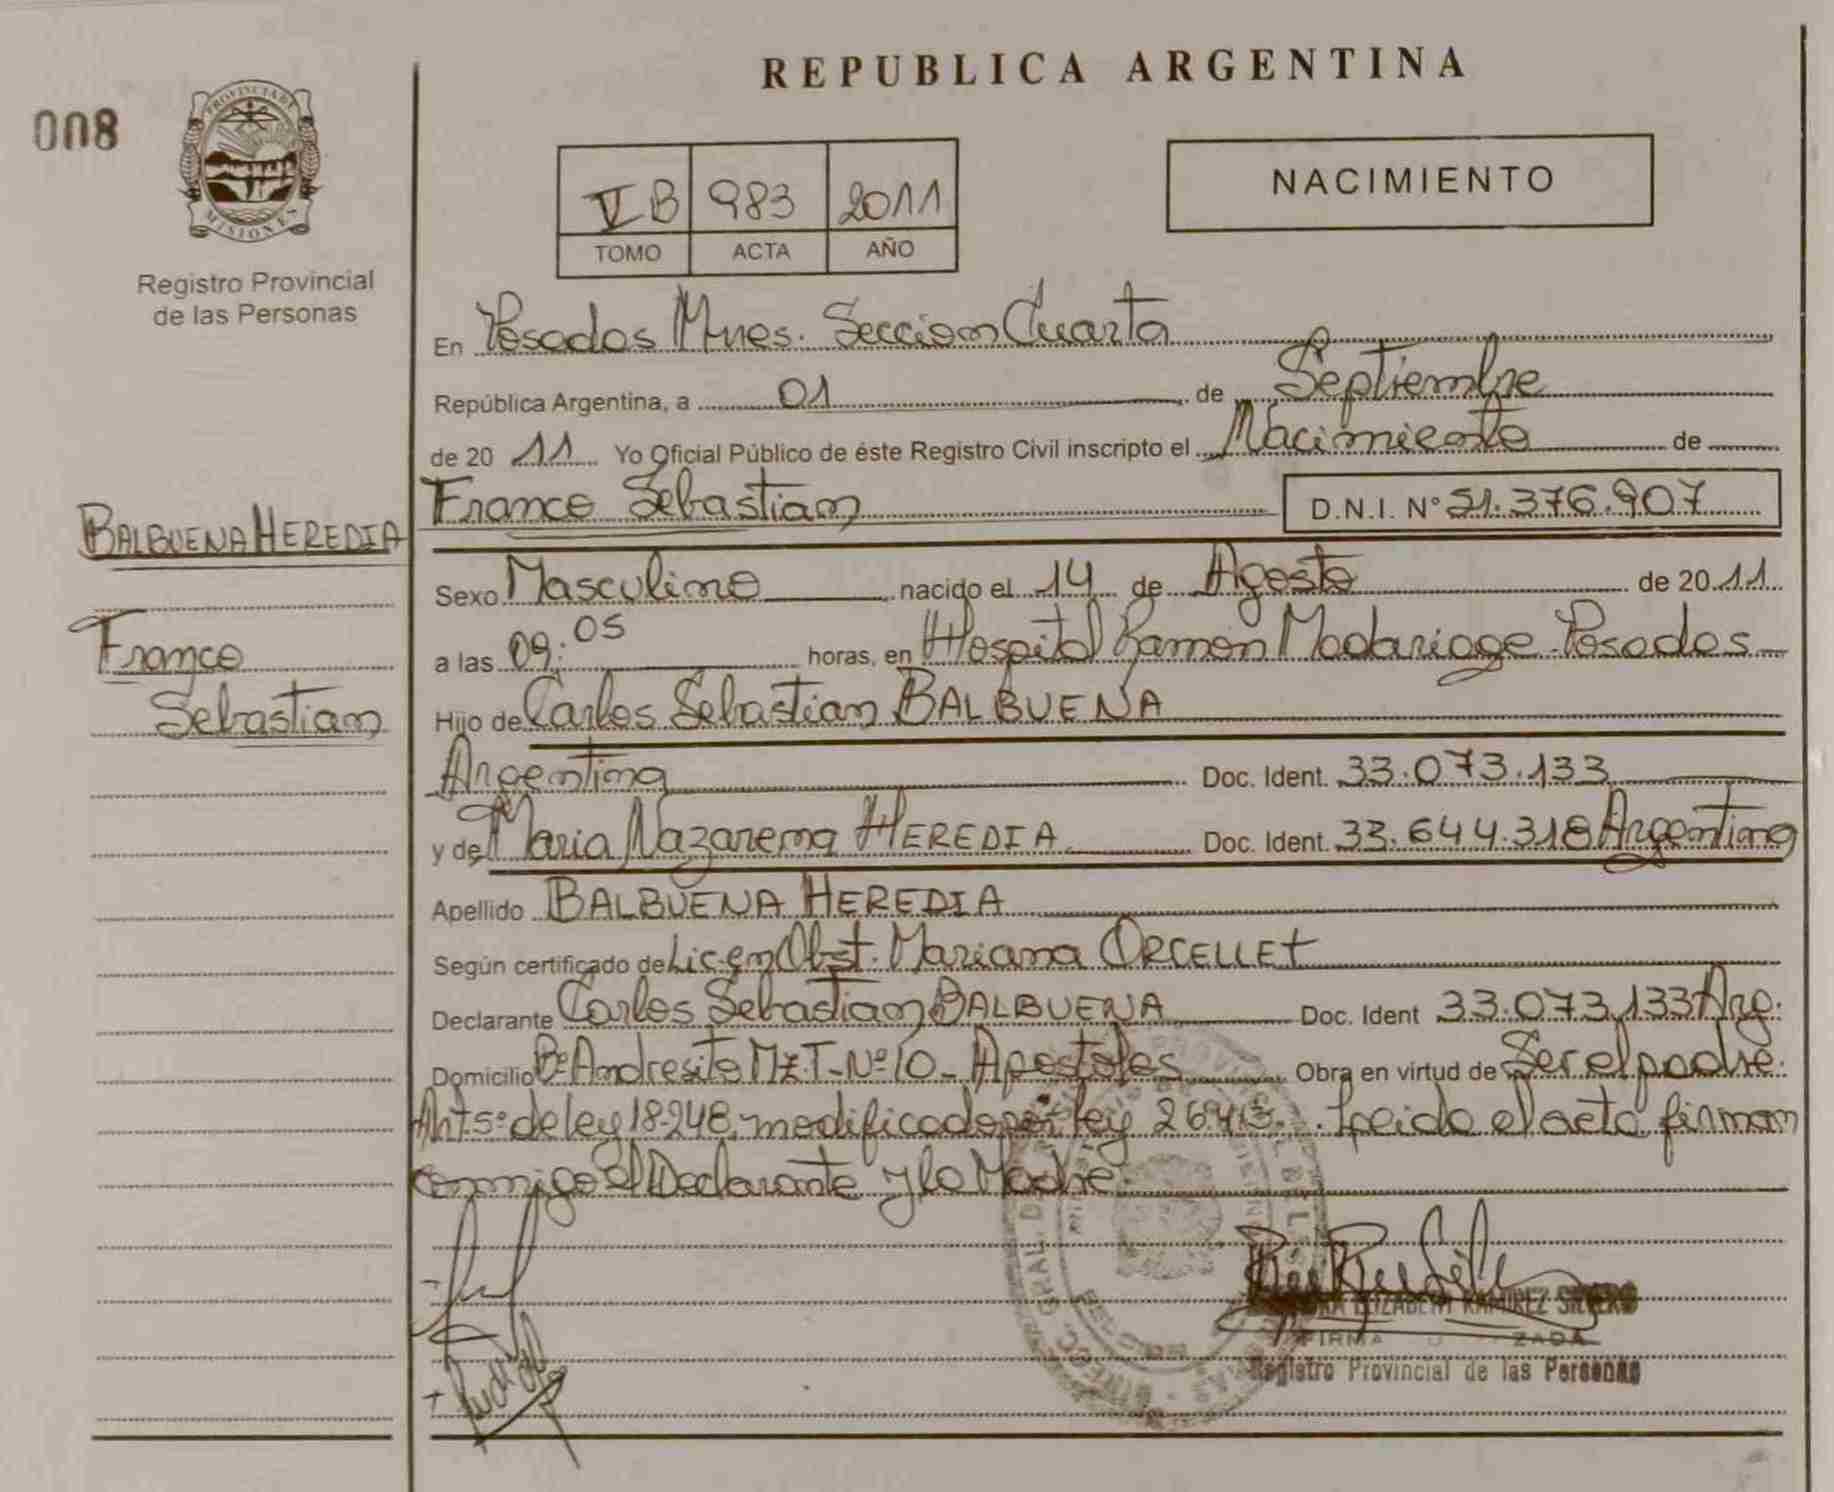 REPUBLICA ARGENTINA
008
PROVINCIA DE MISIONES
Registro Provincial
de las Personas
V B 983 2011
TOMO ACTA AÑO
NACIMIENTO
En Posadas Mnes. Seccion Cuarta
República Argentina, a 01 de Septiembre
de 20 11 Yo Oficial Público de éste Registro Civil inscripto el Nacimiento de
Franco Sebastian D.N.I. Nº 51.376.907
BALBUENA HEREDIA
Franco
Sebastian
Sexo Masculino nacido el 14 de Agosto de 20 11
a las 09:05 horas, en Hospital Ramón Madariaga - Posadas
Hijo de Carlos Sebastian BALBUENA
Argentina Doc. Ident. 33.073.133
y de Maria Nazarena HEREDIA Doc. Ident. 33.644.318 Argentina
Apellido BALBUENA HEREDIA
Según certificado de Licen Obst. Mariana ORCELLET
Declarante Carlos Sebastian BALBUENA Doc. Ident 33.073.133 Arg.
Domicilio Bº Andresito Mz. T - Nº 10 - Apostoles Obra en virtud de Ser el padre.
Art 5º de ley 18.248, modificado por ley 26.413. Leido el acta firman
conmigo el Declarante y la Madre.
ELIZABETH RAMIREZ SILVERO
FIRMA
Registro Provincial de las Personas